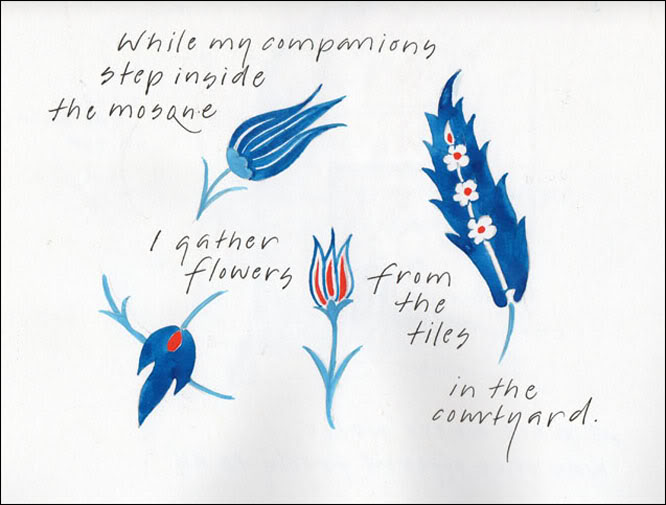 While my companions
step inside
the mosque
I gather
flowers
from
the
tiles
in the
courtyard.